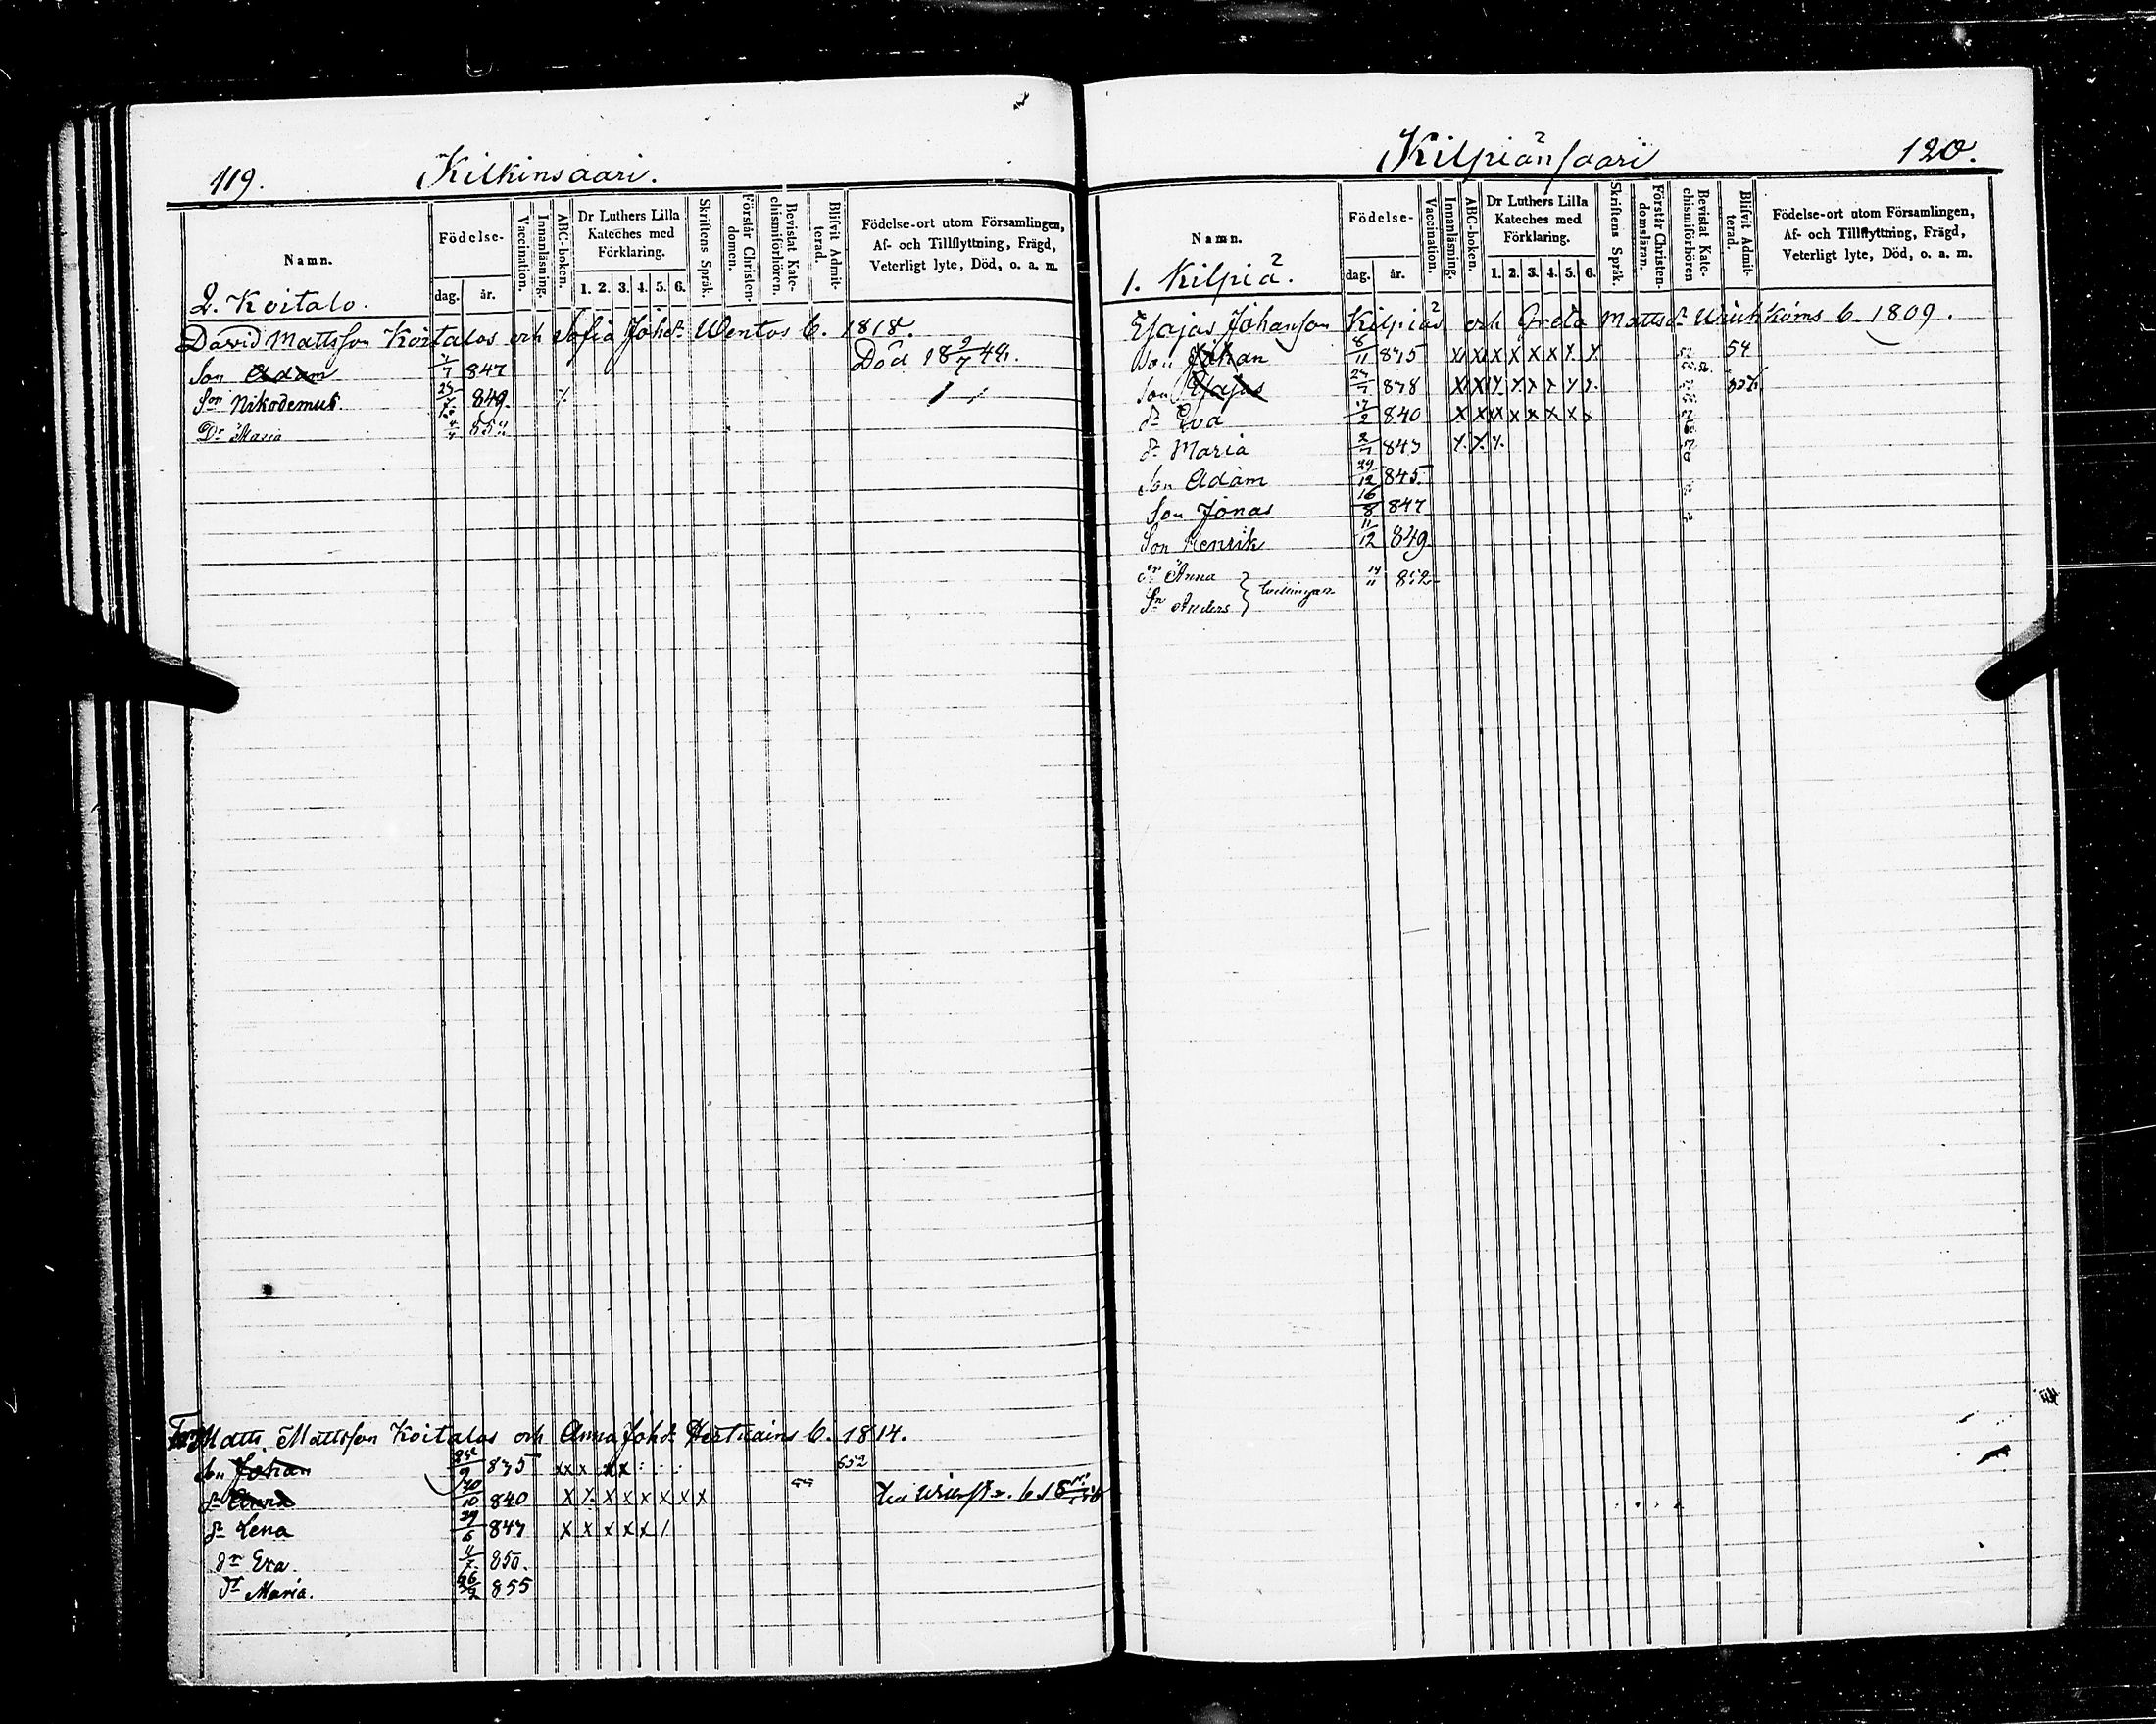 119.
Kilkinsaari.
Namn.
Födelse-
dag. år.
Vaccination.
Innanläsning.
ABC-boken.
Dr Luthers Lilla Kateches med Förklaring.
1. 2. 3. 4. 5. 6.
Skriftens Språk.
Förstår Christen-domen.
Bevistat Kate-chismiförhören.
Blifvit Admit-terad.
Födelse-ort utom Församlingen,
Af- och Tillflyttning, Frägd,
Veterligt lyte, Död, o. a. m.
2. Koitalo.
David Mattsson Koitalos och Sofia Johsdr Wentos b. 1818.
Son Adam 847 Död
Son Nikodemus. 849
Dr Maria
Matts Mattsson Koitalas och Anna Johsdr b. 1814.
Son Johan 9 835 x x x x x
dr Anna 10 840 x x x x x x x x
dr Lena 29/6 847 x x x x x /
dr Eva 850.
dr Maria. 855
Kilpiänsaari
120.
Namn.
Födelse-
dag. år.
Vaccination.
Innanläsning.
ABC-boken.
Dr Luthers Lilla Kateches med Förklaring.
1. 2. 3. 4. 5. 6.
Skriftens Språk.
Förstår Christen-domsläran.
Bevistat Kate-chismiförhören
Blifvit Admit-terad.
Födelse-ort utom Församlingen,
Af- och Tillflyttning, Frägd,
Veterligt lyte, Död, o. a. m.
1. Kilpiä.
Esajas Johansson Kilpiäs och Greta Mattsdr b. 1809.
Son Johan 8/11 835 x x x x x x x x 54
Son Esajas 838 x x x x x x x x
dr Eva 2 840 x x x x x x x x
dr Maria 843 x x x
Son Adam 29/12 845.
Son Jonas 16/8 847
Son Henrik 11/12 849
dr Anna 852
Sn Anders } tvillingar